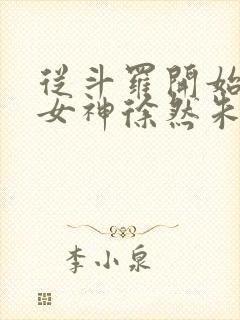 從斗羅開始
女神徐然朱
李小泉